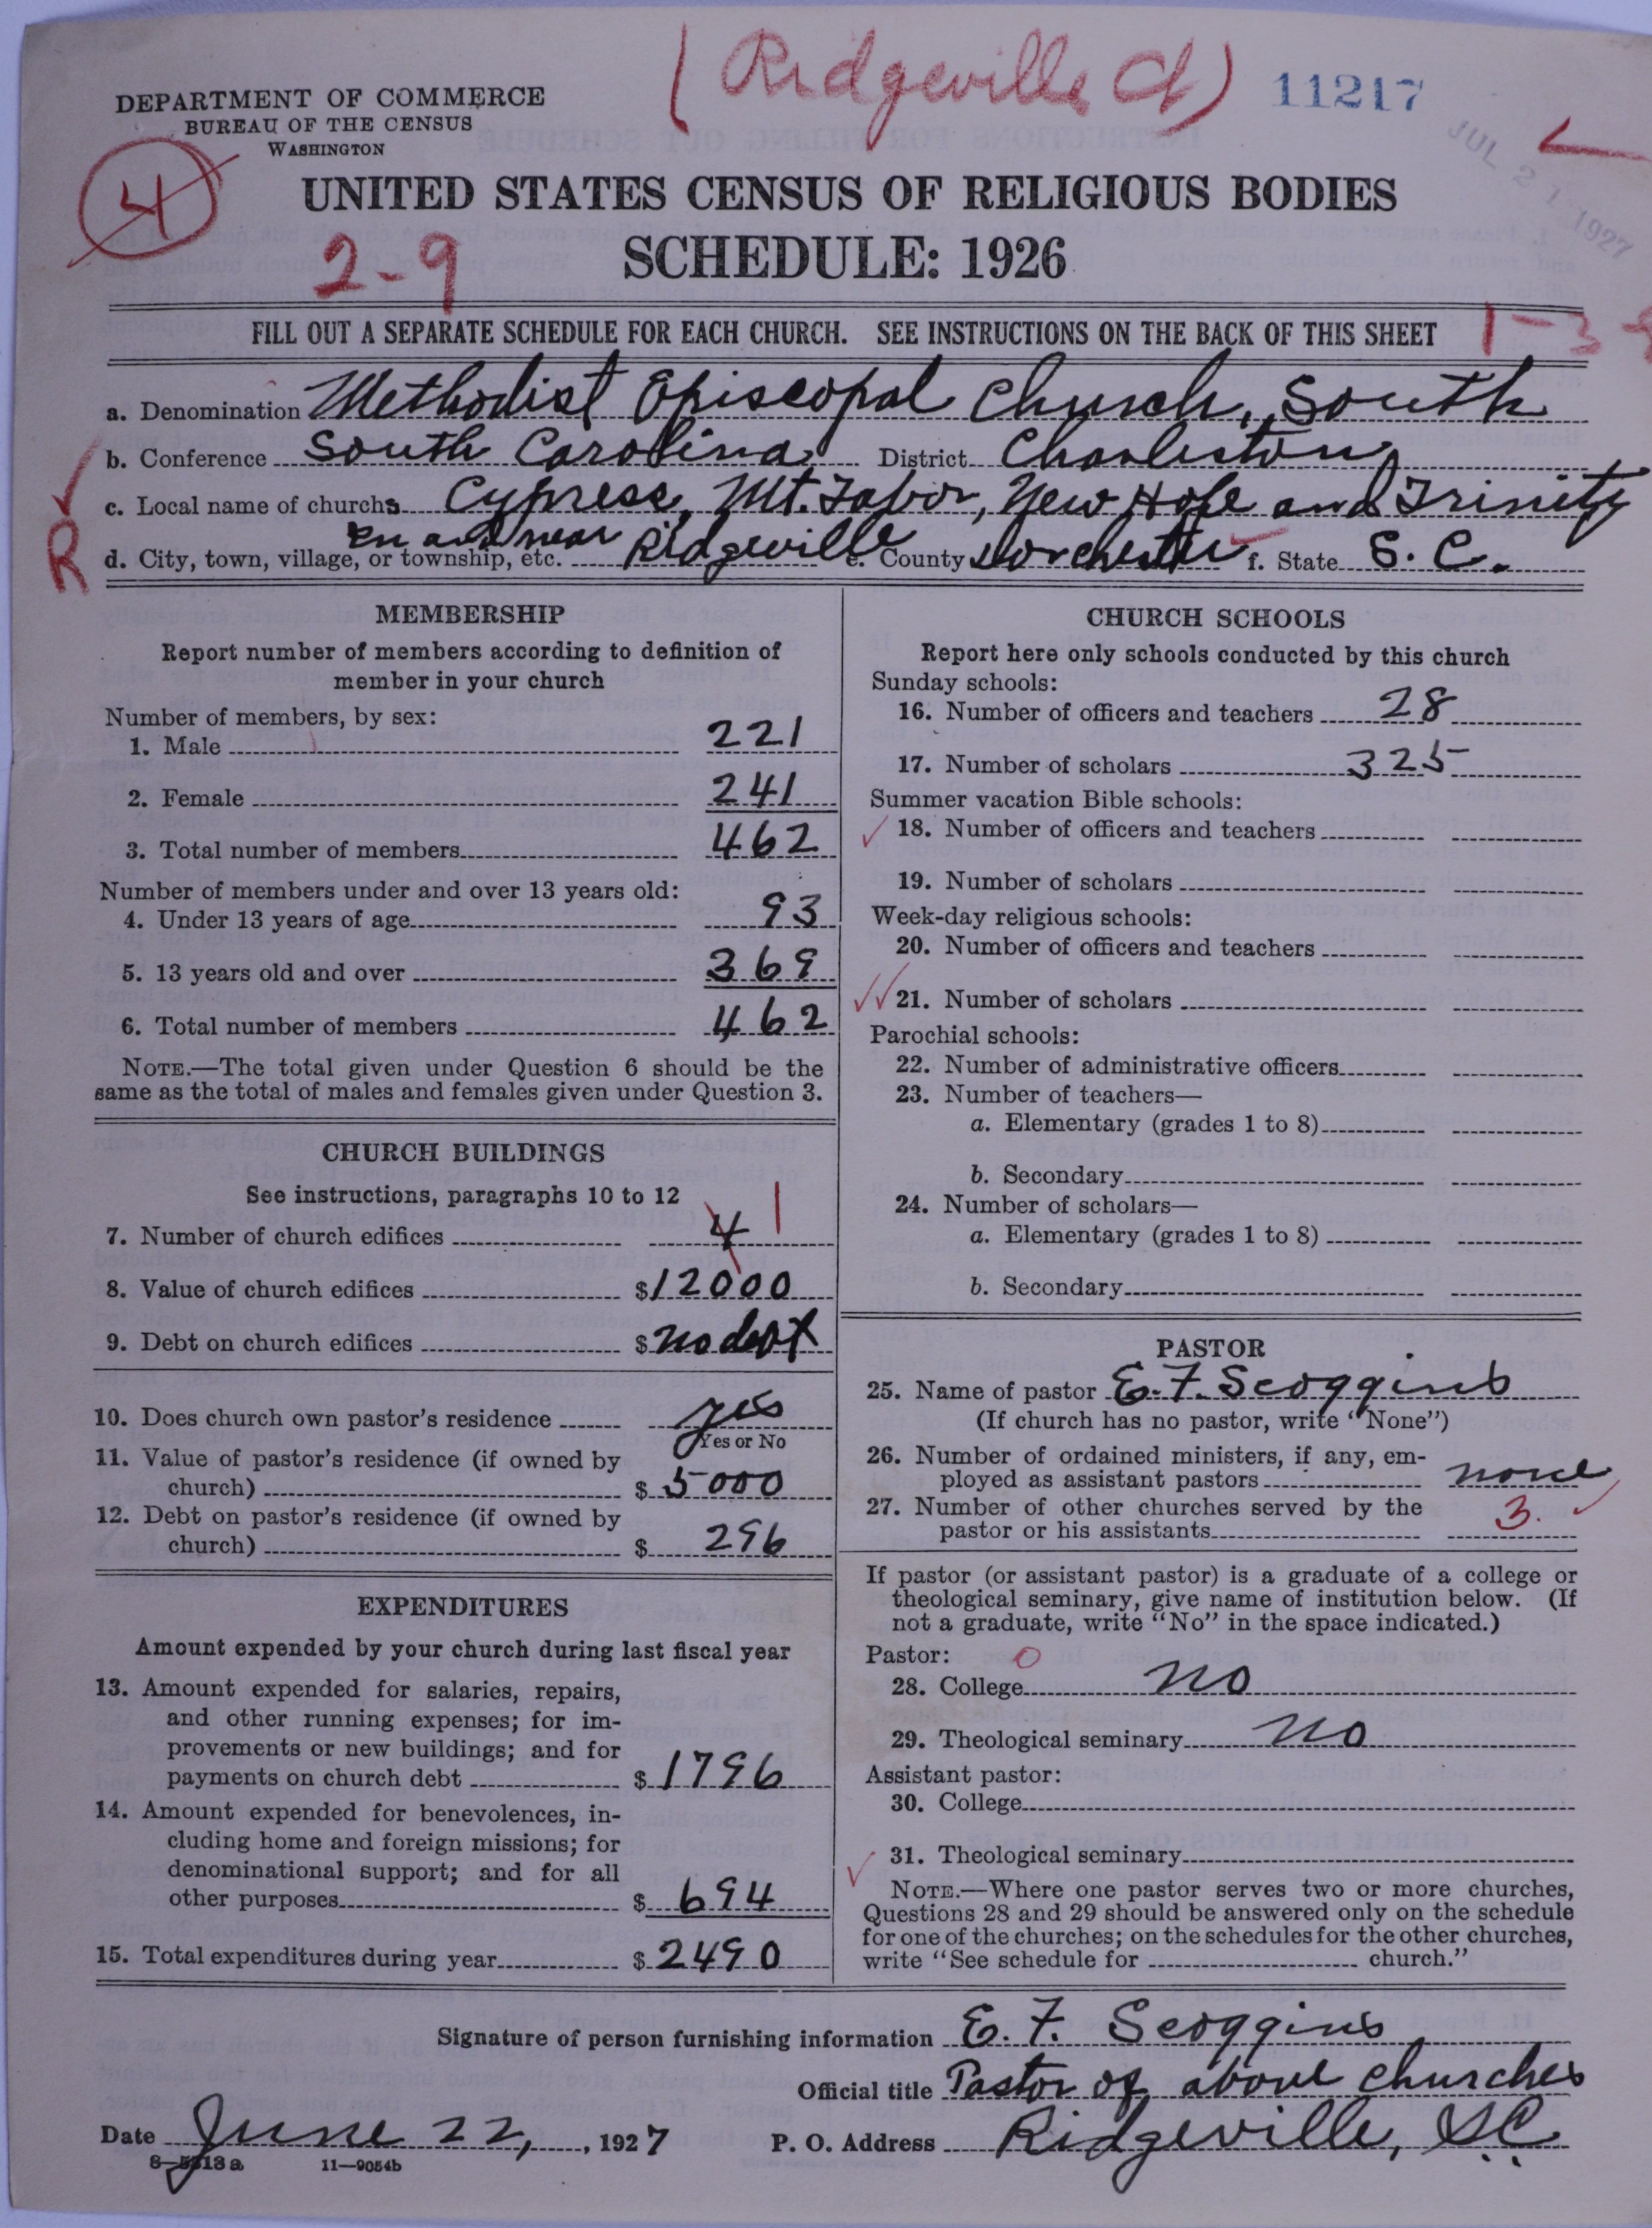 (Ridgeville Ct)
11217
JUL 21 1927
DEPARTMENT OF COMMERCE
BUREAU OF THE CENSUS
WASHINGTON
4
UNITED STATES CENSUS OF RELIGIOUS BODIES
2-9
SCHEDULE: 1926
FILL OUT A SEPARATE SCHEDULE FOR EACH CHURCH. SEE INSTRUCTIONS ON THE BACK OF THIS SHEET
1-3
a. Denomination Methodist Episcopal Church, South
b. Conference South Carolina District Charleston
c. Local name of churchs Cypress, Mt. Tabor, New Hope and Trinity
R
d. City, town, village, or township, etc. in and near Ridgeville e. County Dorchester f. State S. C.
MEMBERSHIP
Report number of members according to definition of
member in your church
Number of members, by sex:
1. Male 221
2. Female 241
3. Total number of members 462
Number of members under and over 13 years old:
4. Under 13 years of age 93
5. 13 years old and over 369
6. Total number of members 462
NOTE.—The total given under Question 6 should be the
same as the total of males and females given under Question 3.
CHURCH BUILDINGS
See instructions, paragraphs 10 to 12
7. Number of church edifices 4 1
8. Value of church edifices $12000
9. Debt on church edifices $ no debt
10. Does church own pastor's residence yes
Yes or No
11. Value of pastor's residence (if owned by
church) $ 5000
12. Debt on pastor's residence (if owned by
church) $ 296
EXPENDITURES
Amount expended by your church during last fiscal year
13. Amount expended for salaries, repairs,
and other running expenses; for im-
provements or new buildings; and for
payments on church debt $ 1796
14. Amount expended for benevolences, in-
cluding home and foreign missions; for
denominational support; and for all
other purposes $ 694
15. Total expenditures during year $ 2490
CHURCH SCHOOLS
Report here only schools conducted by this church
Sunday schools:
16. Number of officers and teachers 28
17. Number of scholars 325
Summer vacation Bible schools:
18. Number of officers and teachers
19. Number of scholars
Week-day religious schools:
20. Number of officers and teachers
21. Number of scholars
Parochial schools:
22. Number of administrative officers
23. Number of teachers—
a. Elementary (grades 1 to 8)
b. Secondary
24. Number of scholars—
a. Elementary (grades 1 to 8)
b. Secondary
PASTOR
25. Name of pastor E. F. Scoggins
(If church has no pastor, write "None")
26. Number of ordained ministers, if any, em-
ployed as assistant pastors none
27. Number of other churches served by the
pastor or his assistants 3.
If pastor (or assistant pastor) is a graduate of a college or
theological seminary, give name of institution below. (If
not a graduate, write "No" in the space indicated.)
Pastor: 0
28. College no
29. Theological seminary no
Assistant pastor:
30. College
31. Theological seminary
NOTE.—Where one pastor serves two or more churches,
Questions 28 and 29 should be answered only on the schedule
for one of the churches; on the schedules for the other churches,
write "See schedule for church."
Signature of person furnishing information E. F. Scoggins
Official title Pastor of above churches
Date June 22, 1927 P. O. Address Ridgeville, S.C.
8-5313a 11—9054b